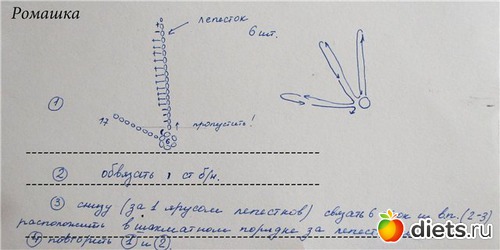 Ромашка
лепесток
6 шт.
①
17
6
пропустить!
② обвязать , ст б/н.
③ снизу (за 1 ярусом лепестков) связать 6 ок из вп. (2-3)
расположить в шахматном порядке за лепес
④ повторить ① и ②
diets.ru